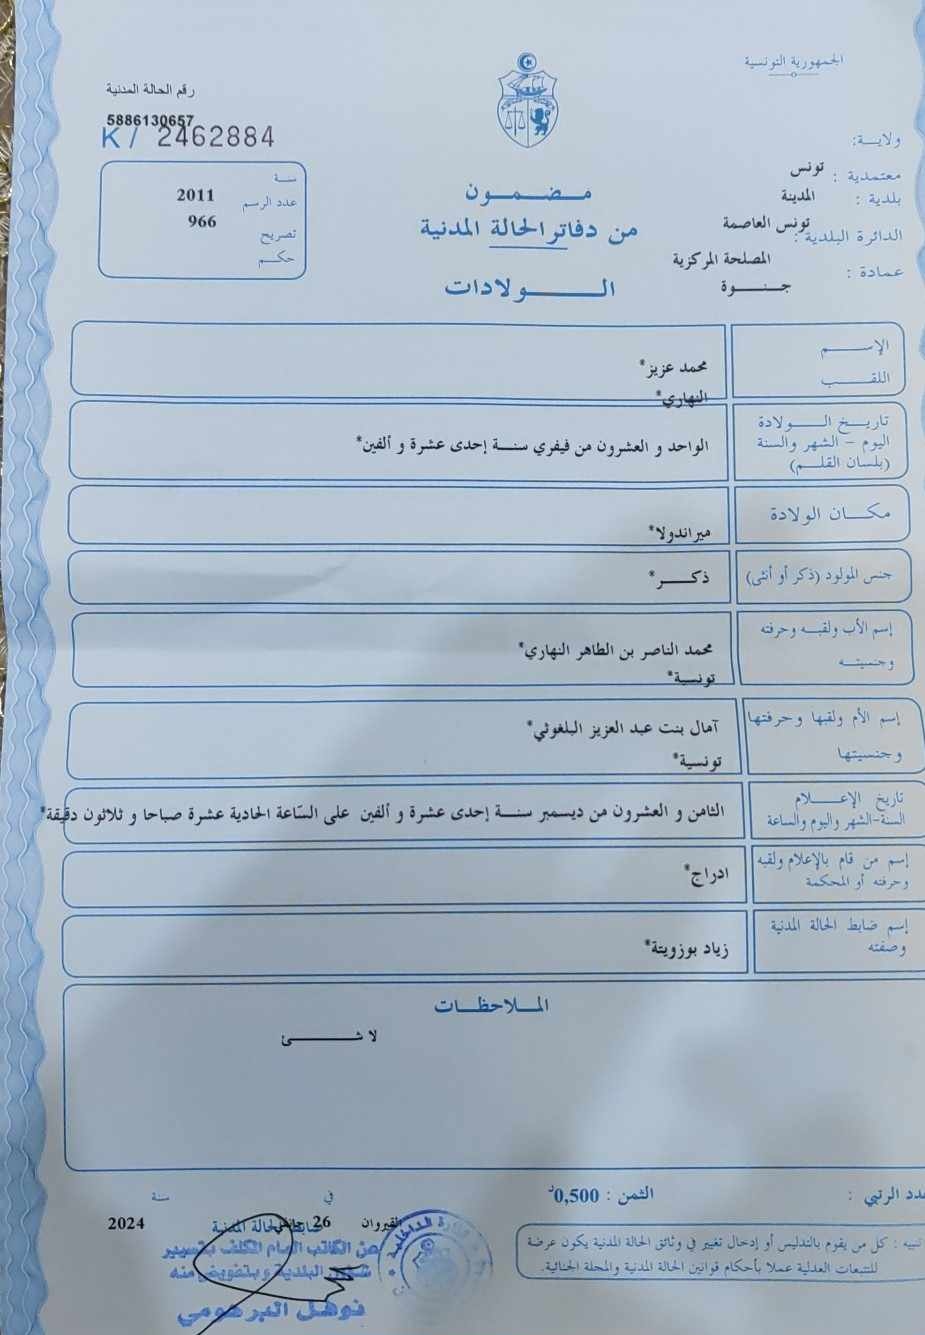 الجمهورية التونسية
رقم الحالة المدنية
5886130657
K / 2462884
ولايـة:
تونس
معتمدية :
المدينة
بلدية :
تونس العاصمة
الدائرة البلدية :
المصلحة المركزية
عمادة :
جنوة
سنة
2011
عدد الرسم
966
تصريح
حكم
مضمون
من دفاتر الحالة المدنية
الولادات
الإسم
اللقب
محمد عزيز*
النهاري*
تاريخ الولادة
اليوم - الشهر والسنة
(بلسان القلم)
الواحد و العشرون من فيفري سنة إحدى عشرة و ألفين*
مكان الولادة
ميراندولا*
جنس المولود (ذكر أو أنثى)
ذكر*
إسم الأب ولقبه وحرفته
وجنسيته
محمد الناصر بن الطاهر النهاري*
تونسية*
إسم الأم ولقبها وحرفتها
وجنسيتها
آمال بنت عبد العزيز البلغوثي*
تونسية*
تاريخ الإعلام
السنة-الشهر واليوم والساعة
الثامن و العشرون من ديسمبر سنة إحدى عشرة و ألفين على السّاعة الحادية عشرة صباحا و ثلاثون دقيقة*
إسم من قام بالإعلام ولقبه
وحرفته أو المحكمة
ادراج*
إسم ضابط الحالة المدنية
وصفته
زياد بوزويتة*
الملاحظات
لا شئ
عدد الرتبي :
الثمن : 0,500د
تنبيه : كل من يقوم بالتدليس أو إدخال تغيير في وثائق الحالة المدنية يكون عرضة
للتتبعات العدلية عملا بأحكام قوانين الحالة المدنية والمجلة الجنائية.
في
سنة
القيروان 26 جانفي
2024
ضابط الحالة المدنية
عن الكاتب العام المكلف بتسيير
شؤون البلدية وبتفويض منه
نوفل البرهومي
وزارة الداخلية